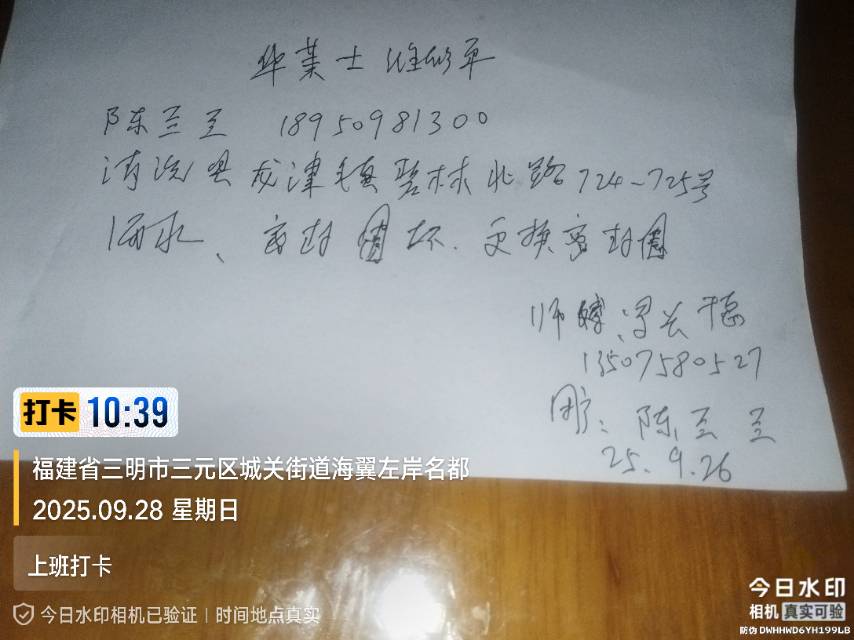 华美士维修单
陈兰玉 18950981300
清流县龙津镇碧林北路724~725号
漏水、密封圈坏.更换密封圈
师傅:
13507580527
用户:陈玉玉
25.9.26
打卡 10:39
福建省三明市三元区城关街道海翼左岸名都
2025.09.28 星期日
上班打卡
今日水印相机已验证 | 时间地点真实
今日水印
相机 真实可验
防伪 DWHHWD6YH199LB